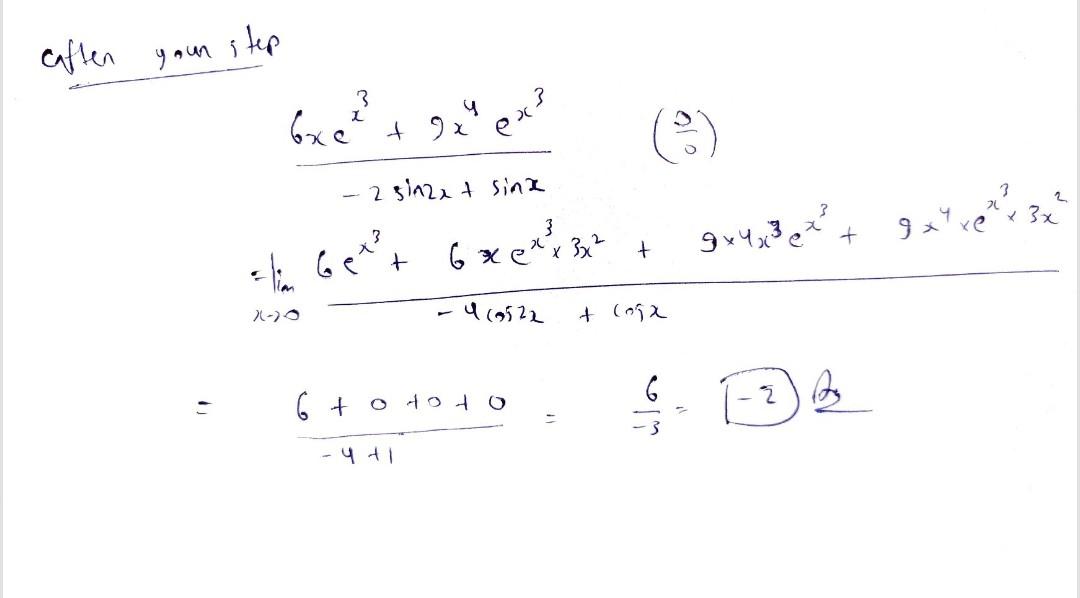 after your step
6xe^{x^3} + 9x^4 e^{x^3} / -2 sin2x + sinx (0/0)
= lim x->0 6e^{x^3} + 6xe^{x^3} × 3x^2 + 9×4x^3 e^{x^3} + 9x^4 × e^{x^3} × 3x^2 / -4cos2x + cosx
= 6 + 0 + 0 + 0 / -4 + 1 = 6 / -3 = -2